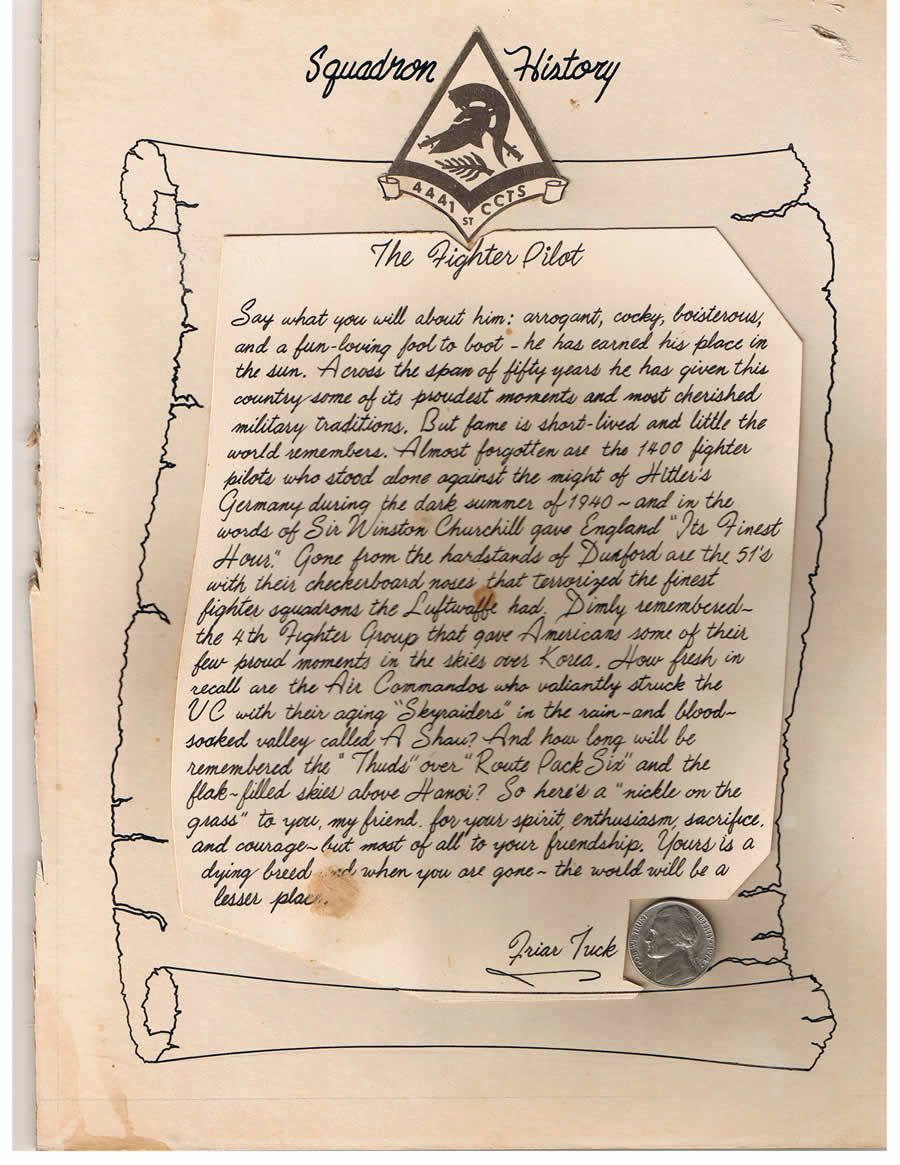 Squadron History
4441 ST CCTS
The Fighter Pilot
Say what you will about him: arrogant, cocky, boisterous,
and a fun-loving fool to boot - he has earned his place in
the sun. Across the span of fifty years he has given this
country some of its proudest moments and most cherished
military traditions. But fame is short-lived and little the
world remembers. Almost forgotten are the 1400 fighter
pilots who stood alone against the might of Hitler's
Germany during the dark summer of 1940 ~ and in the
words of Sir Winston Churchill gave England "Its Finest
Hour." Gone from the hardstands of Dunford are the 51's
with their checkerboard noses that terrorized the finest
fighter squadrons the Luftwaffe had. Dimly remembered~
the 4th Fighter Group that gave Americans some of their
few proud moments in the skies over Korea. How fresh in
recall are the Air Commandos who valiantly struck the
VC with their aging "Skyraiders" in the rain~and blood~
soaked valley called A Shau? And how long will be
remembered the "Thuds" over "Route Pack Six" and the
flak~filled skies above Hanoi? So here's a "nickle on the
grass" to you, my friend, for your spirit, enthusiasm, sacrifice,
and courage~but most of all to your friendship. Yours is a
dying breed and when you are gone~ the world will be a
lesser place.
Friar Tuck
LIBERTY